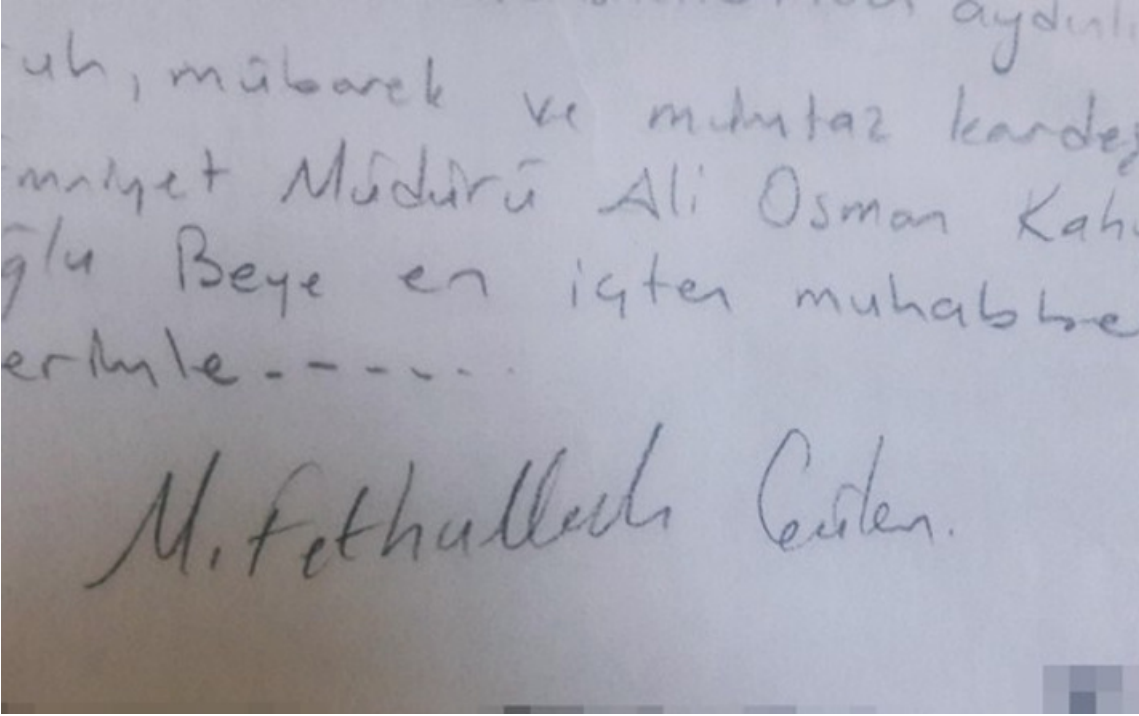 aydınlı
uh, mübarek ve mümtaz kardeş
mniyet Müdürü Ali Osman Kah
ğlu Beye en içten muhabbe
erimle------
M. Fethullah Gülen.